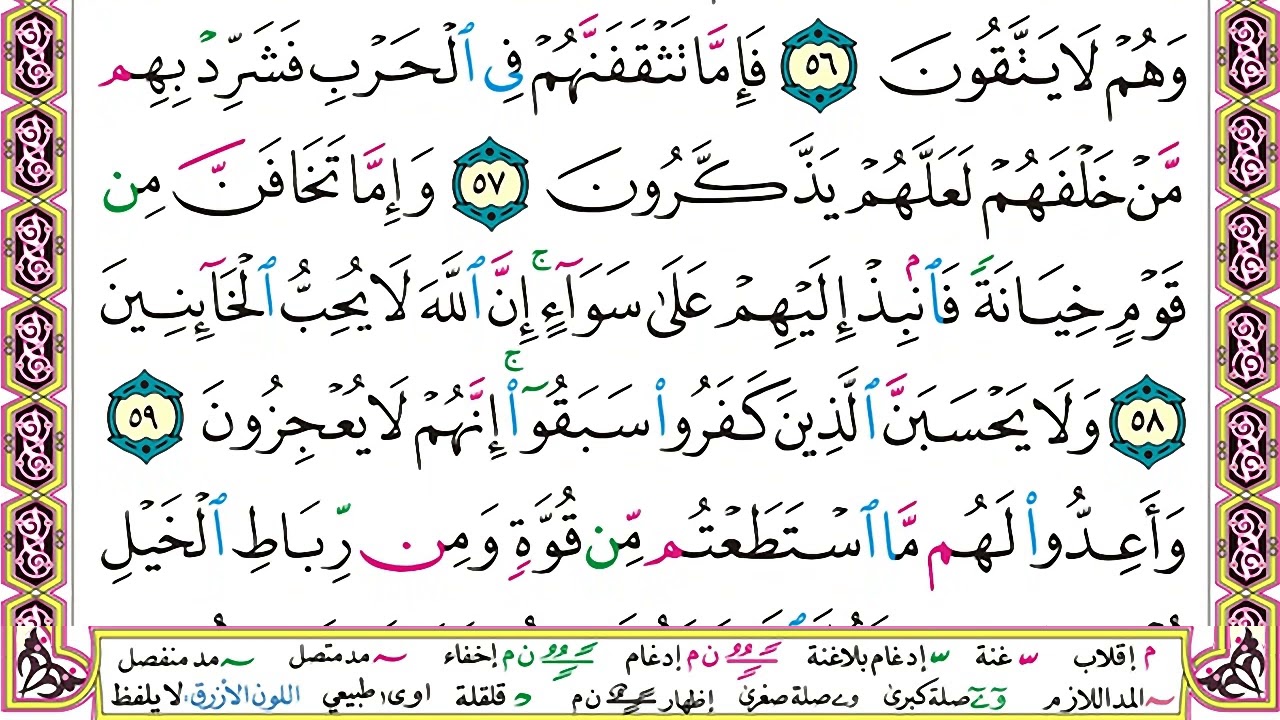 وَهُمْ لَا يَتَّقُونَ ٥٦ فَإِمَّا تَثْقَفَنَّهُمْ فِى ٱلْحَرْبِ فَشَرِّدْ بِهِم
مَّنْ خَلْفَهُمْ لَعَلَّهُمْ يَذَّكَّرُونَ ٥٧ وَإِمَّا تَخَافَنَّ مِن
قَوْمٍ خِيَانَةً فَٱنۢبِذْ إِلَيْهِمْ عَلَىٰ سَوَآءٍ ۚ إِنَّ ٱللَّهَ لَا يُحِبُّ ٱلْخَآئِنِينَ
٥٨ وَلَا يَحْسَبَنَّ ٱلَّذِينَ كَفَرُوا۟ سَبَقُوٓا۟ ۚ إِنَّهُمْ لَا يُعْجِزُونَ ٥٩
وَأَعِدُّوا۟ لَهُم مَّا ٱسْتَطَعْتُم مِّن قُوَّةٍ وَمِن رِّبَاطِ ٱلْخَيْلِ
م إقلاب س غنة س إدغام بلاغنة ن م إدغام ن م إخفاء ~ مد متصل ~ مد منفصل
~ المد اللازم و ے صلة كبرىٰ و ے صلة صغرىٰ إظهار ن م د قلقلة اوى طبيعي اللون الأزرق: لا يلفظ